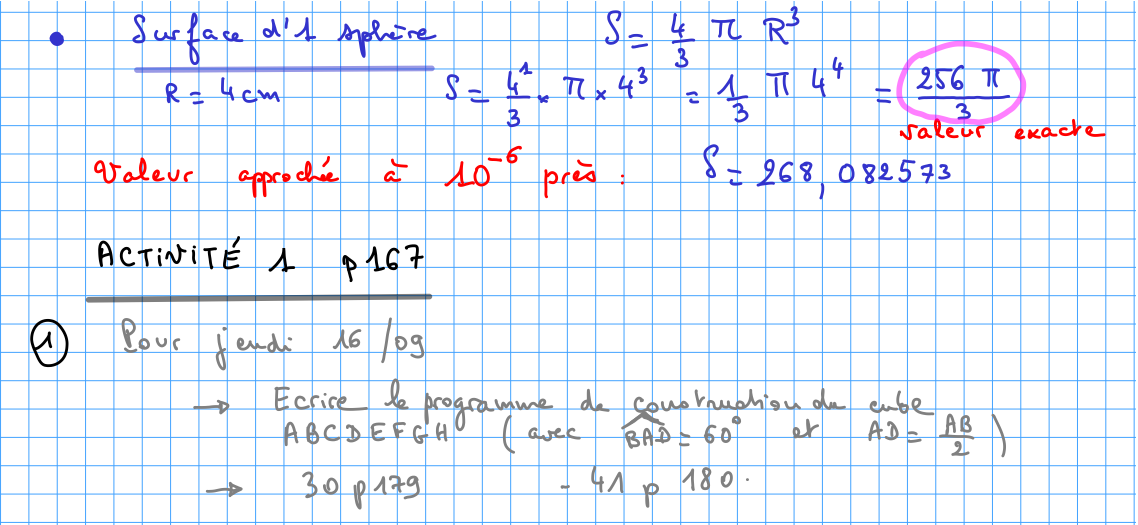 • Surface d'1 sphère S = 4/3 π R³
R = 4cm S = 4¹/3 × π × 4³ = 1/3 π 4⁴ = 256 π/3
valeur exacte
Valeur approchée à 10⁻⁶ près : S = 268,082573
ACTIVITÉ 1 p167
① Pour jeudi 16/09
→ Ecrire le programme de construction du cube
ABCDEFGH (avec BAD = 60° et AD = AB/2)
→ 30 p179 - 41 p 180.